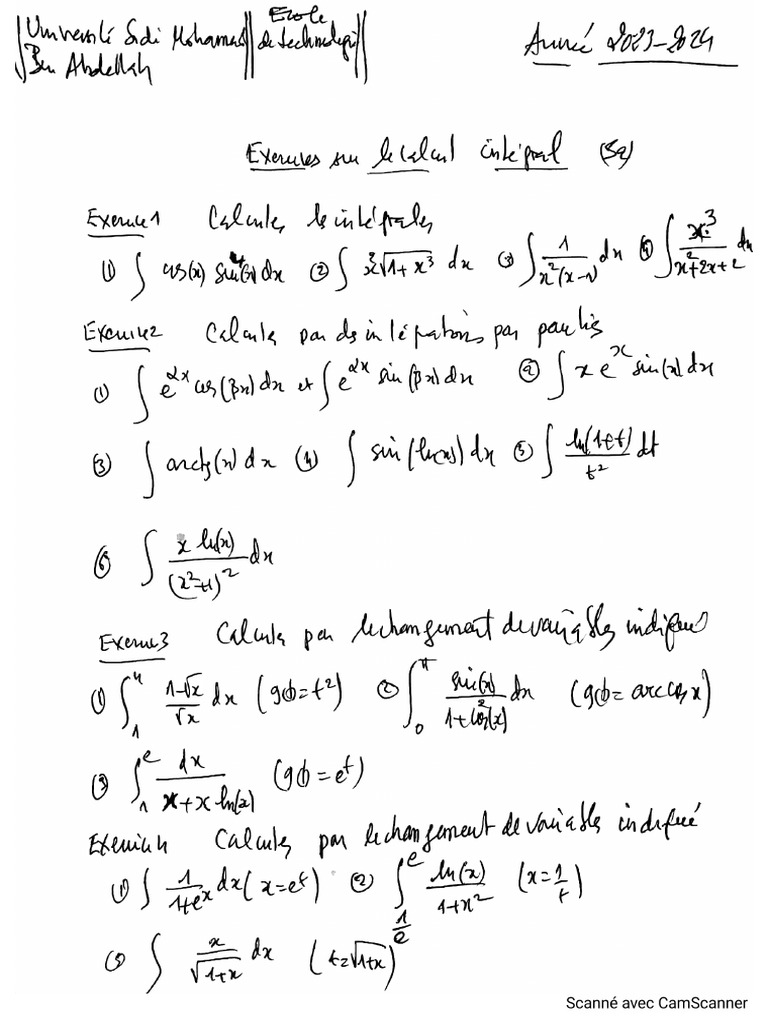 Université Sidi Mohamed || Ecole de technologie || Année 2023-2024
Ben Abdellah
Exercices sur le calcul intégral (S2)
Exercice 1 Calculer les intégrales
① ∫ cos(x) sin⁴(x) dx ② ∫ x²√(1+x³) dx ③ ∫ 1/(x²(x-1)) dx ④ ∫ x³/(x²+2x+2) dx
Exercice 2 Calculer par des intégrations par parties
① ∫ e^{αx} cos(βx) dx et ∫ e^{αx} sin(βx) dx ② ∫ x e^x sin(x) dx
③ ∫ arctg(x) dx ④ ∫ sin(ln(x)) dx ⑤ ∫ ln(1+t)/t² dt
⑥ ∫ x ln(x)/(x²+1)² dx
Exercice 3 Calculer par le changement de variables indiqué
① ∫₁⁴ (1-√x)/√x dx (g(t)=t²) ② ∫₀^π sin(x)/(1+cos²(x)) dx (g(t)=arccos x)
③ ∫₁^e dx/(x+x ln(x)) (g(t)=e^t)
Exercice 4 Calculer par le changement de variables indiqué
① ∫ 1/(1+e^x) dx (x=e^t) ② ∫_{1/e}^e ln(x)/(1+x²) (x=1/t)
③ ∫ x/√(1+x) dx (t=√(1+x))
Scanné avec CamScanner